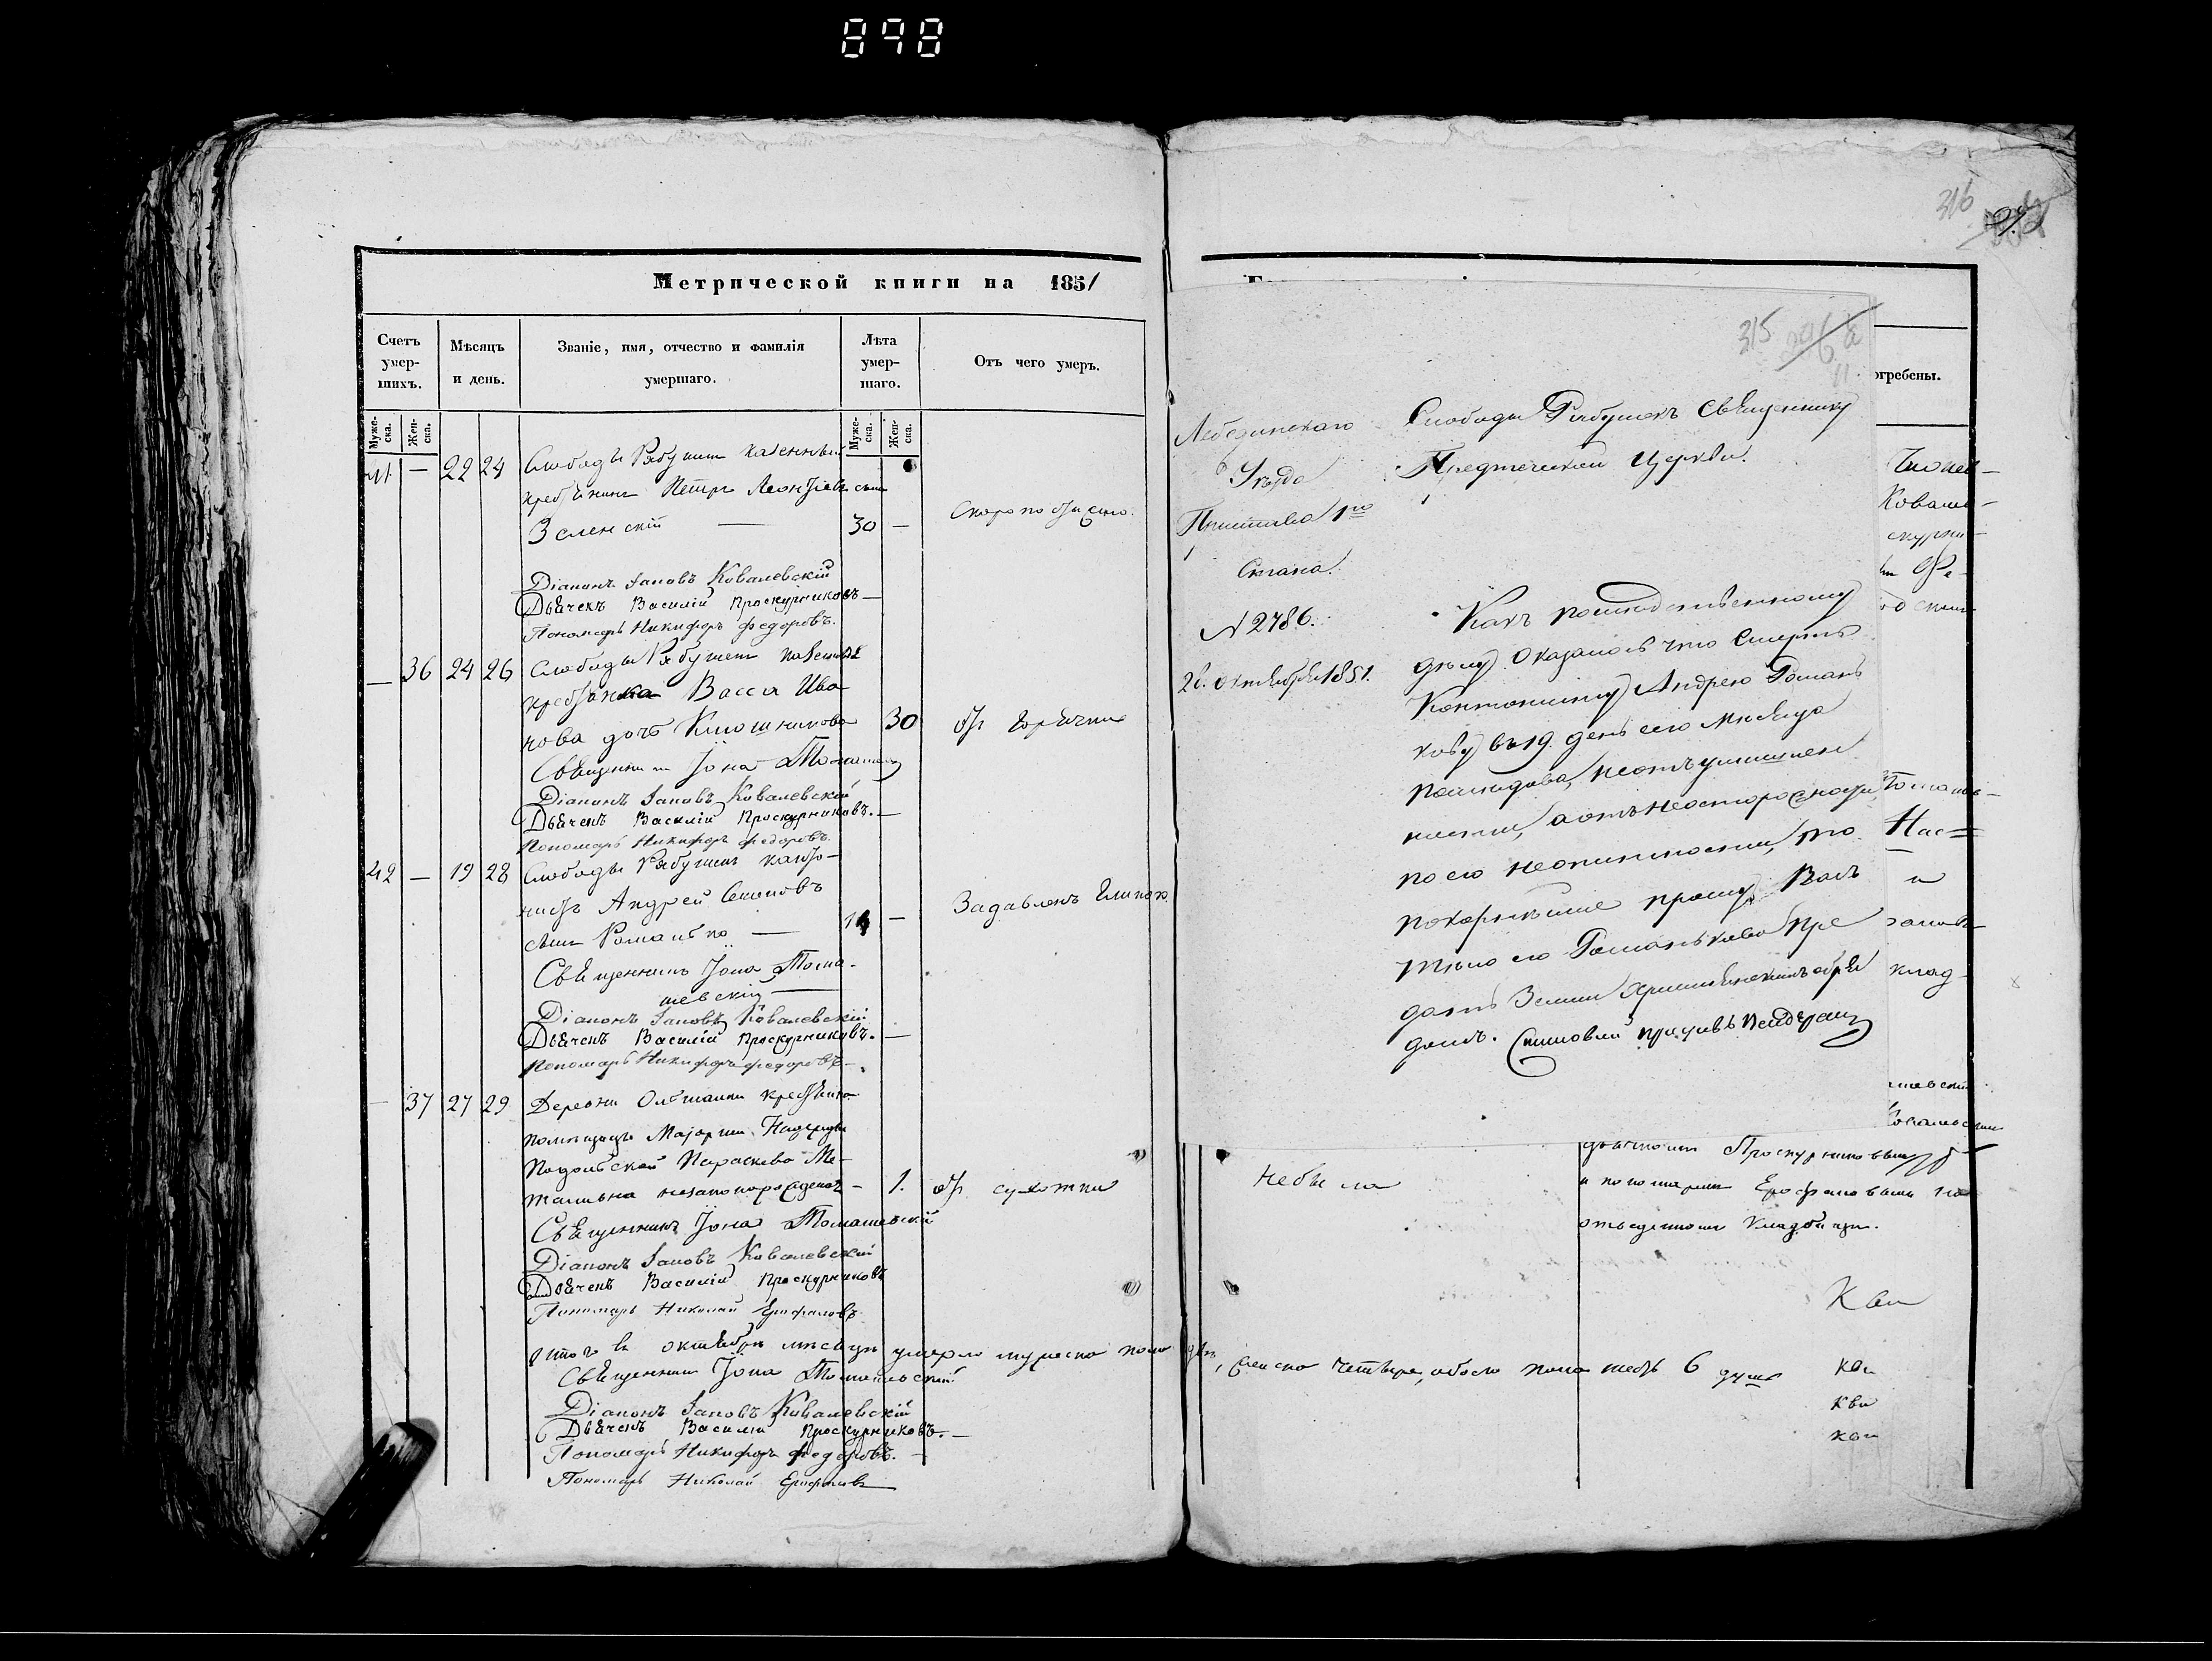 898
316
Метрической книги на 1851
Счетъ умер-шихъ.
Мѣсяцъ и день.
Званіе, имя, отчество и фамилія умершаго.
Лѣта умер-шаго.
Отъ чего умеръ.
Муже-ска.
Жен-ска.
Муже-ска.
Жен-ска.
41 — 22 24 Слободы Рябушекъ казенный
крестьянинъ Петръ Леонтіевъ сынъ
Зеленскій — 30 — Скоропостижно.
Діаконъ Іаковъ Ковалевскій
Дьячекъ Василій Проскурниковъ —
Пономарь Никифоръ Федоровъ.
— 36 24 26 Слободы Рябушекъ
крестьянка Васса Ива-
нова дочь 30 отъ горячки
Священникъ Іона Томашевскій
Діаконъ Іаковъ Ковалевскій
Дьячекъ Василій Проскурниковъ. —
Пономарь Никифоръ Федоровъ.
42 — 19 28 Слободы Рябушекъ канто-
нистъ Андрей Семеновъ
сынъ Романько — 14 — Задавленъ глиною.
Священникъ Іона Тома-
шевскій —
Діаконъ Іаковъ Ковалевскій
Дьячекъ Василій Проскурниковъ. —
Пономарь Никифоръ Федоровъ —
— 37 27 29 Деревни Ольшанки крестьянка
помѣщицы Маіорши Надежды
Подольской Параскева Ме-
незаконорожденая — 1. отъ сухотки
Священникъ Іона Томашевскій
Діаконъ Іаковъ Ковалевскій
Дьячекъ Василій Проскурниковъ
Пономарь Николай Ерофаловъ
Итого въ октябрѣ мѣсяцѣ умерло мужеска женска четыре, обоего пола 6 душъ
Священникъ Іона Томашевскій
Діаконъ Іаковъ Ковалевскій
Дьячекъ Василій Проскурниковъ. —
Пономарь Никифоръ Федоровъ.
Пономарь Николай Ерофаловъ
315
11.
Лебединскаго
Уѣзда
Пристава 1го
Стана.
N 2786.
26. октября 1851.
Слободы Рябушекъ Священнику
Предтечевской Церкви.
Какъ по слѣдственному
дѣлу оказалось что смерть
Кантонисту Андрею Романь
кову въ 19. день сего мѣсяца
послѣдова, не отъ умышлен
ности, а отъ неосторожности
по его неопытности, то
покорнѣйше прошу Васъ
тѣло его Романькова пре
дать землѣ христіянскимъ обря
домъ. Становой приставъ
огребены.
Ковале-
клад-
Небыла
дьячкомъ Проскурниковымъ
и пономаремъ Ерофаловымъ на
отведенномъ кладбищѣ.